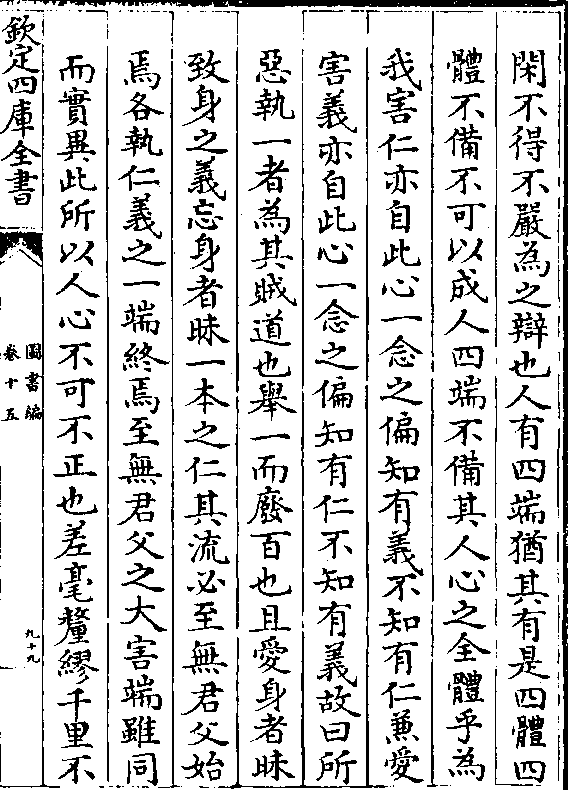 閑不得不嚴為之辯也人有四端猶其有是四體四
體不備不可以成人四端不備其人心之全體乎為
我害仁亦自此心一念之偏知有義不知有仁兼愛
害義亦自此心一念之偏知有仁不知有義故曰所
惡執一者為其賊道也舉一而廢百也且愛身者昧
致身之義忘身者昧一本之仁其流必至無君父始
焉各執仁義之一端終焉至無君父之大害端雖同
而實異此所以人心不可不正也差毫釐繆千里不
欽定四庫全書
圖書編
卷十五
九十九